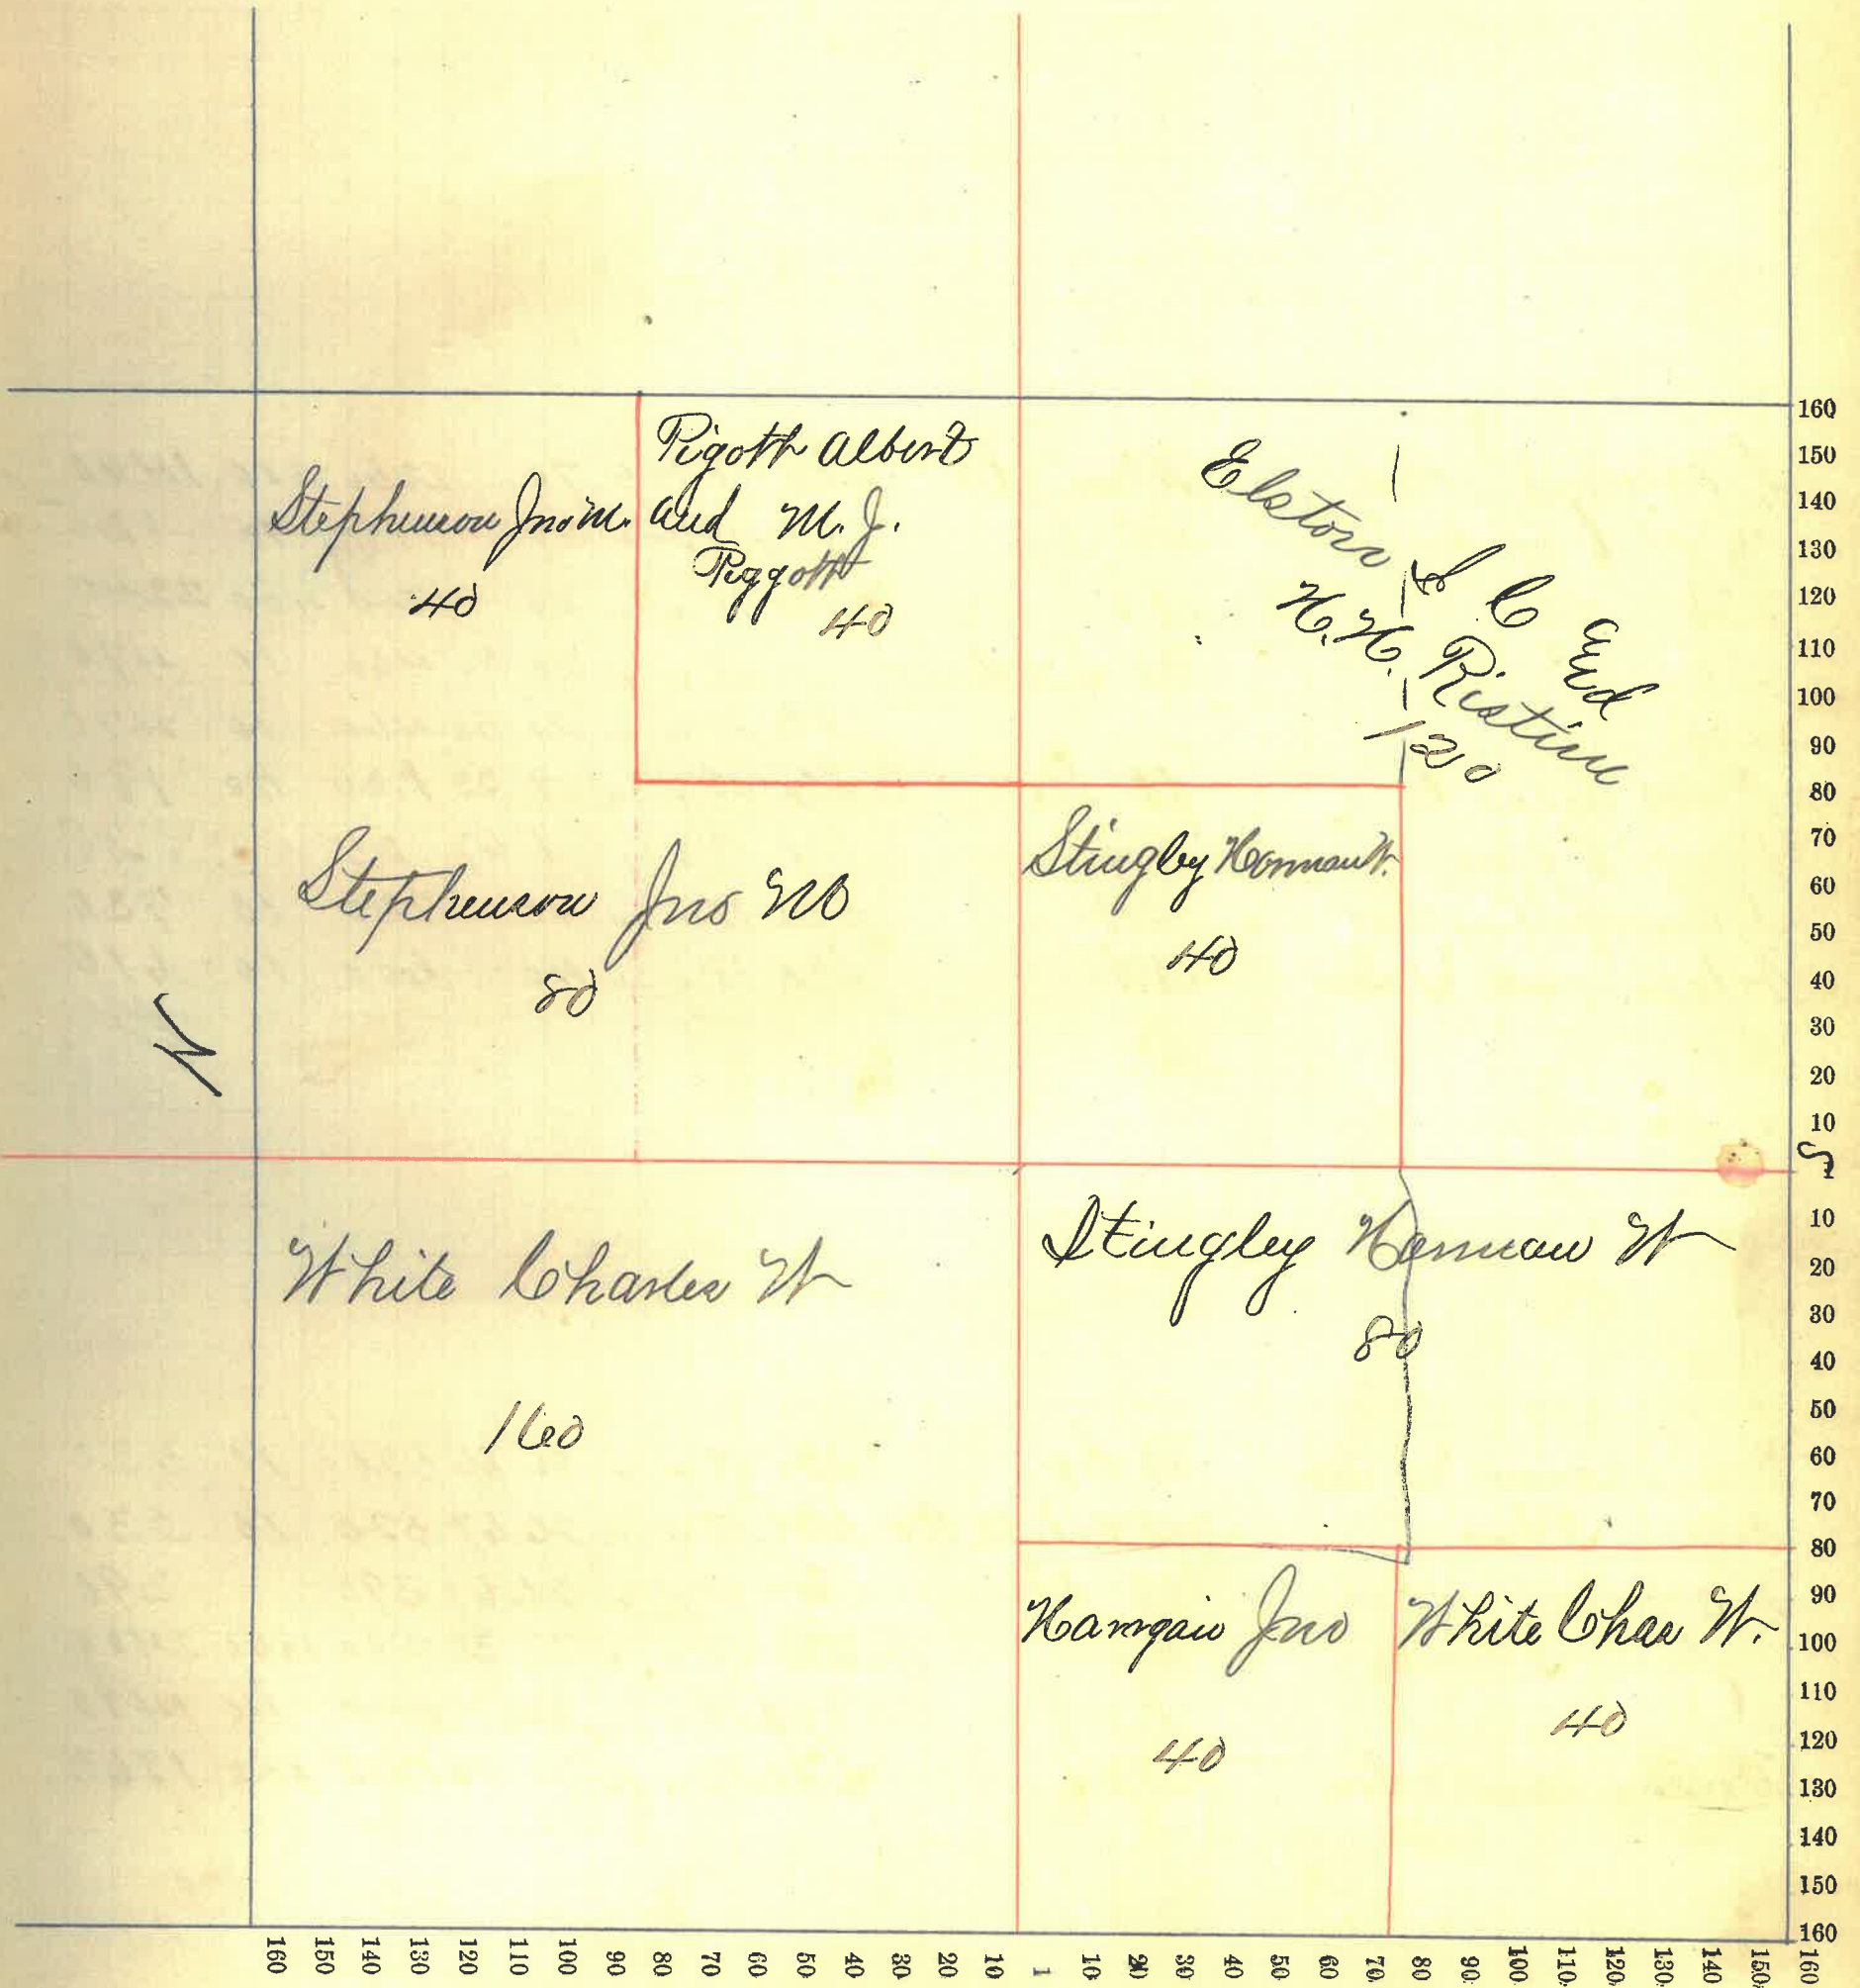 Stephenson Jno M.
40
Pigott Albert
and M. J.
Piggott
40
Elston I C and
H. H. Ristine
120
Stephenson Jno M
80
Stingley Hannan W.
40
N
S
White Charles W
160
Stingley Hannan W
80
Jno
40
White Chas W.
40
160
150
140
130
120
110
100
90
80
70
60
50
40
30
20
10
1
10
20
30
40
50
60
70
80
90
100
110
120
130
140
150
160
160 150 140 130 120 110 100 90 80 70 60 50 40 30 20 10 1 10 20 30 40 50 60 70 80 90 100 110 120 130 140 150 160